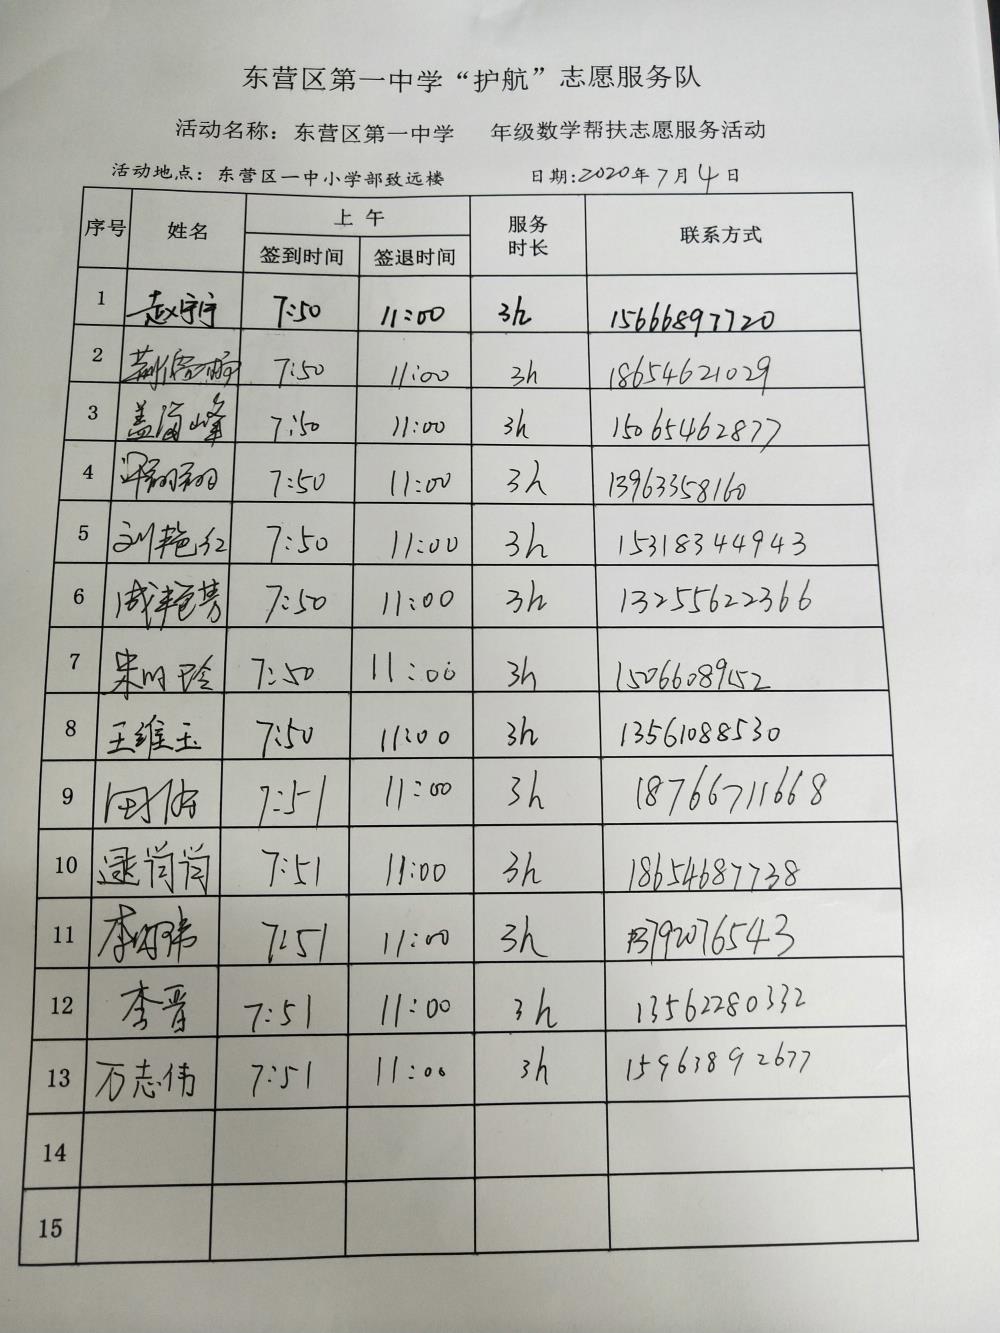 东营区第一中学“护航”志愿服务队
活动名称：东营区第一中学 年级数学帮扶志愿服务活动
活动地点：东营区一中小学部致远楼 日期:2020年7月4日
序号 姓名 上午 服务时长 联系方式
签到时间 签退时间
1 赵宁宁 7:50 11:00 3h 15666897720
2 7:50 11:00 3h 18654621029
3 盖海峰 7:50 11:00 3h 15065462877
4 翔翔 7:50 11:00 3h 13963358160
5 刘艳红 7:50 11:00 3h 15318344943
6 成艳芳 7:50 11:00 3h 13255622366
7 宋明玲 7:50 11:00 3h 15066089152
8 王维玉 7:50 11:00 3h 13561088530
9 田 7:51 11:00 3h 18766711668
10 逯尚尚 7:51 11:00 3h 18654687738
11 李 7:51 11:00 3h 13792076543
12 李晋 7:51 11:00 3h 13562280332
13 万志伟 7:51 11:00 3h 15963892677
14
15